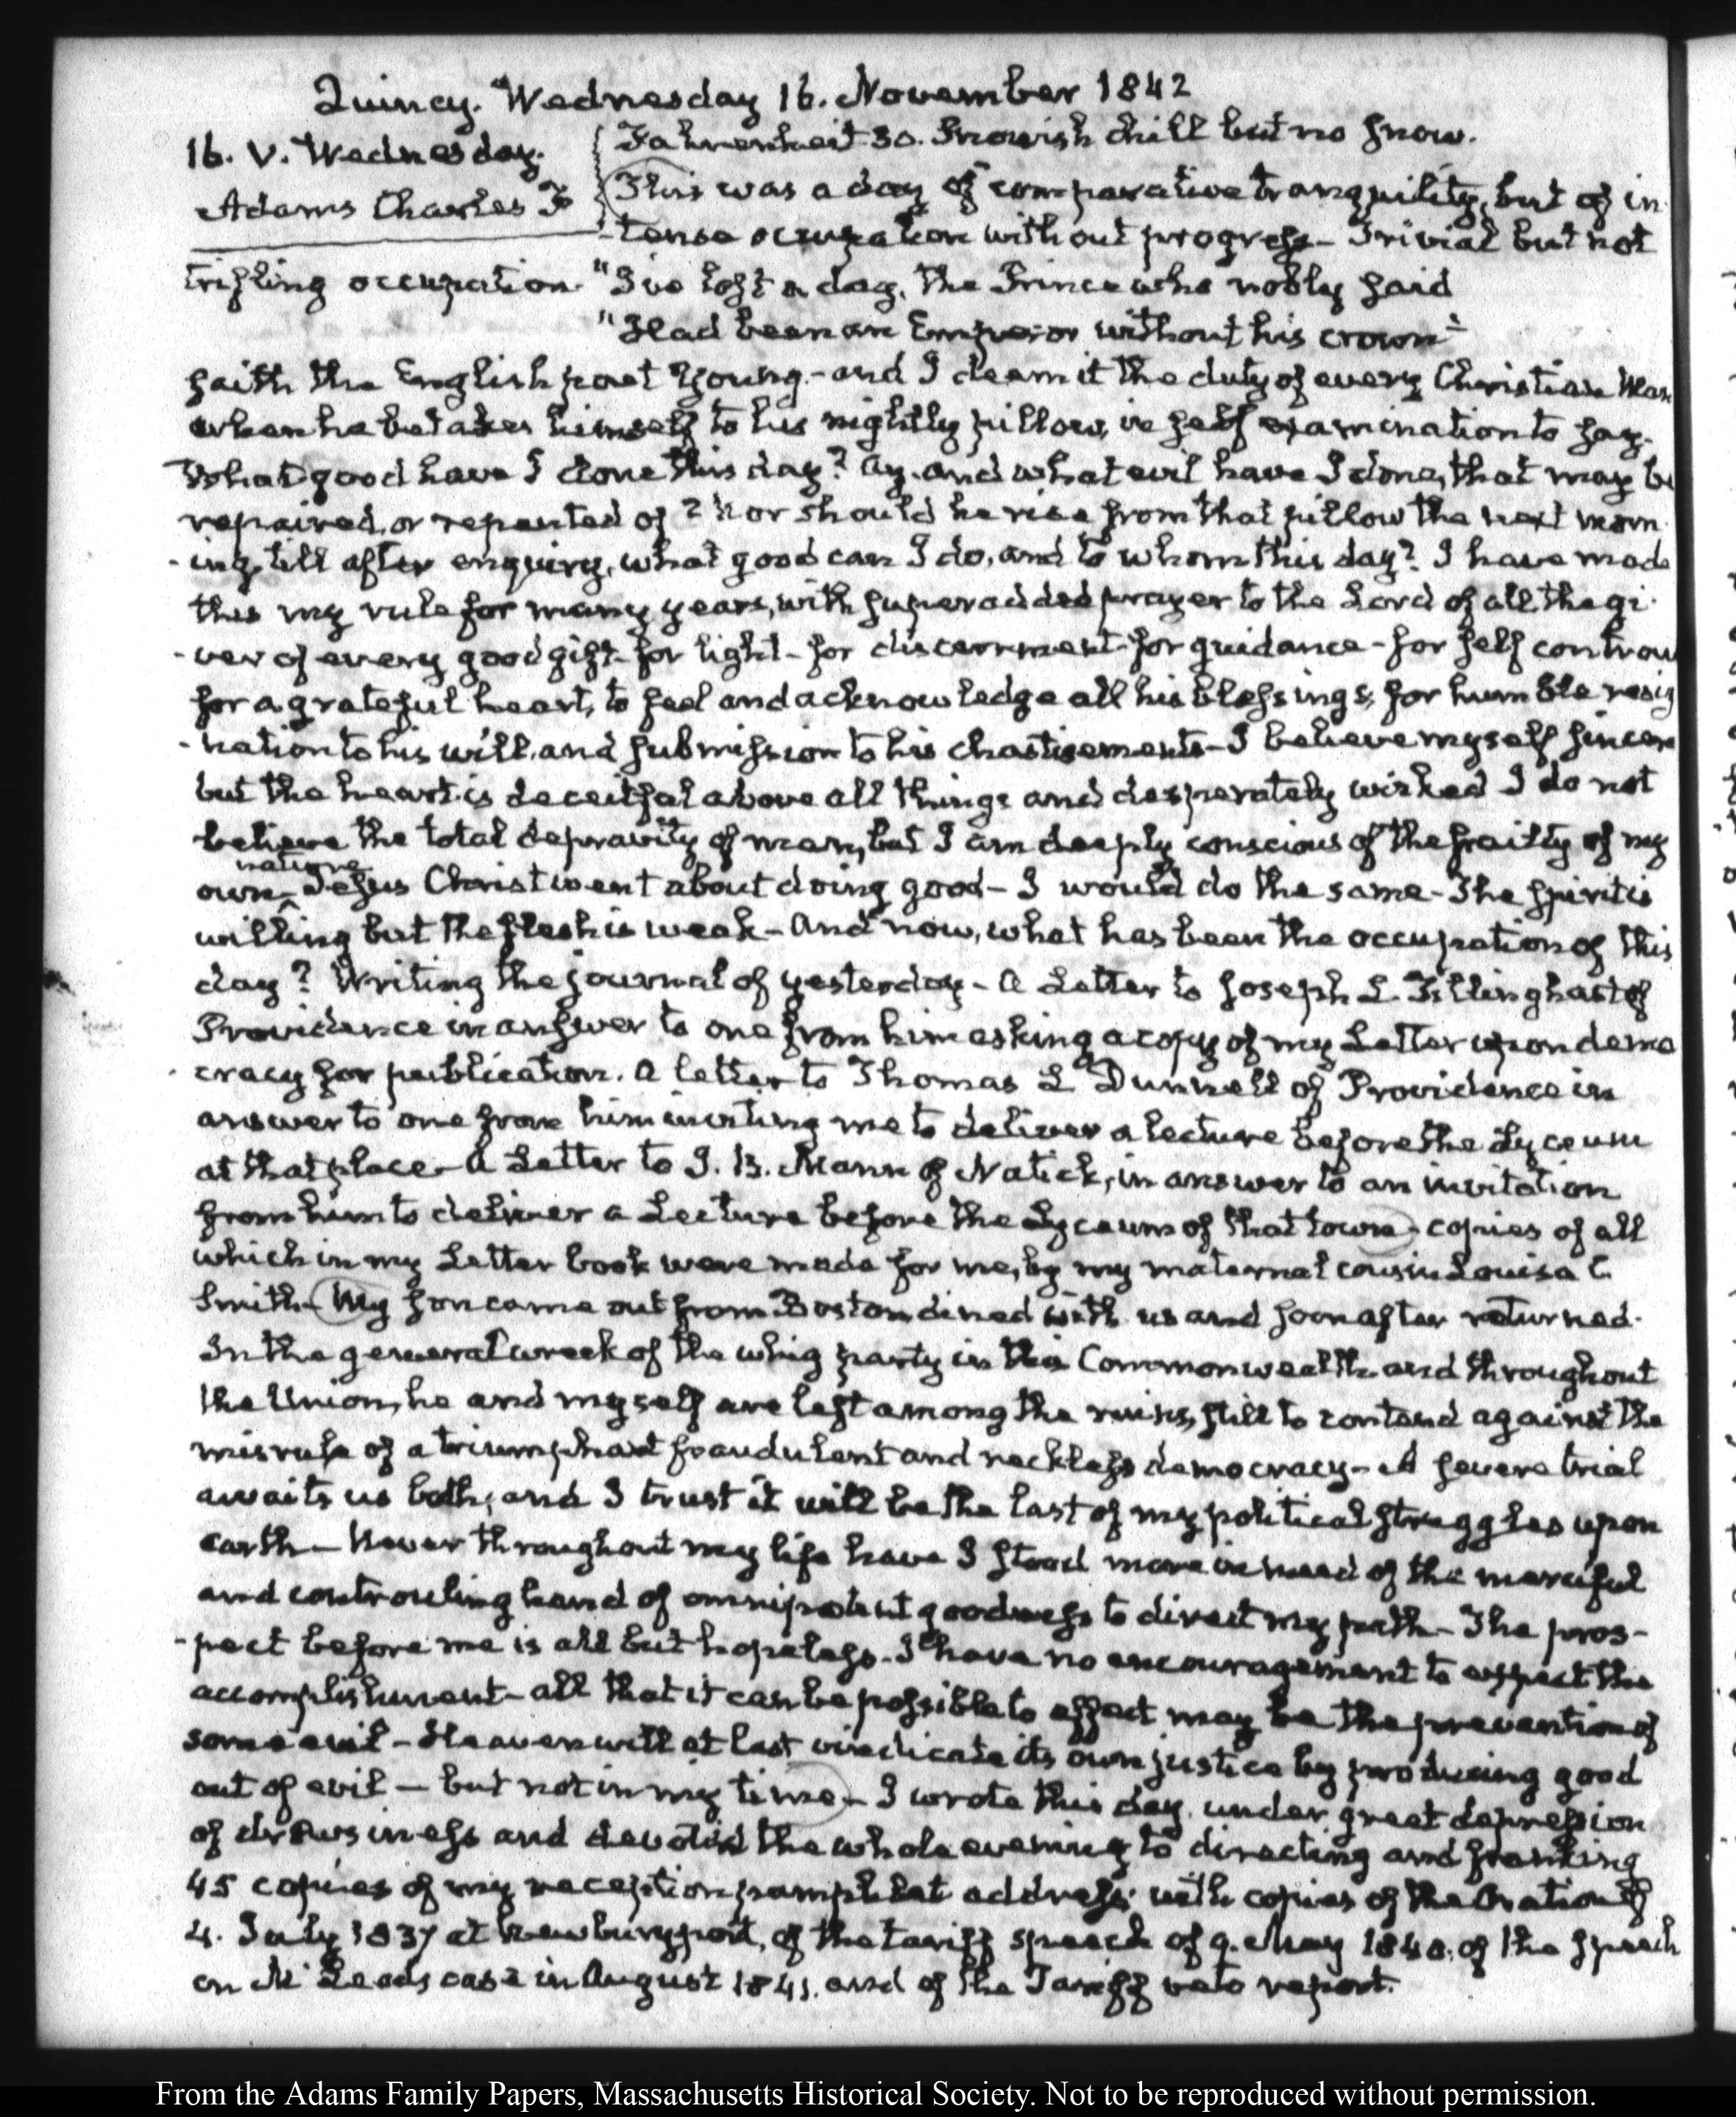 Quincy. Wednesday 16. November 1842
16. V. Wednesday.
Adams Charles F
Fahrenheit 30. Snowish chill but no snow.
This was a day of comparative tranquility, but of in
-tense occupation without progress- Trivial but not
trifling occupation. "I've lost a day, the Prince who nobly said
"Had been an Emperor without his crown"
saith the English poet Young.- and I deem it the duty of every Christian Man
when he betakes himself to his nightly pillow, in self examination to say.
What good have I done this day? Ay. and what evil have I done, that may be
repaired, or repented of? Nor should he rise from that pillow the next morn
-ing, till after enquiry, what good can I do, and to whom this day? I have made
this my rule for many years, with superadded prayer to the Lord of all the gi
-ver of every good gift- for light- for discernment- for guidance- for self controul
for a grateful heart, to feel and acknowledge all his blessings, for humble resig
-nation to his will, and submission to his chastisements- I believe myself sincere
but the heart is deceitful above all things and desperately wicked I do not
believe the total depravity of man, but I am deeply conscious of the frailty of my
own nature Jesus Christ went about doing good- I would do the same- The spirit is
willing but the flesh is weak- And now, what has been the occupation of this
day? Writing the journal of yesterday- A Letter to Joseph L. Tillinghast of
Providence in answer to one from him asking a copy of my Letter upon demo
cracy for publication. A letter to Thomas L Dunnell of Providence in
answer to one from him inviting me to deliver a lecture before the Lyceum
at that place- A Letter to J. B. Mann of Natick, in answer to an invitation
from him to deliver a Lecture before the Lyceum of that town- copies of all
which in my Letter book were made for me, by my maternal cousin Louisa C.
Smith- My son came out from Boston dined with us and soon after returned.
In the general wreck of the whig party in this Commonwealth and throughout
the Union, he and myself are left among the ruins, still to contend against the
misrule of a triumphant fraudulent and reckless democracy- A severe trial
awaits us both, and I trust it will be the last of my political struggles upon
earth- Never throughout my life have I stood more in need of the merciful
and controuling hand of omnipotent goodness to direct my path- The pros-
-pect before me is all but hopeless. I have no encouragement to expect the
accomplishment- all that it can be possible to effect may be the prevention of
some evil- Heaven will at last vindicate its own justice by producing good
out of evil- but not in my time- I wrote this day, under great depression
of drowsiness and devoted the whole evening to directing and franking
45 copies of my reception pamphlet address; with copies of the Oration of
4. July 1837 at Newburyport, of the tariff speech of 9. May 1840. of the speech
on McLeod's case in August 1841. and of the Tariff veto report.
From the Adams Family Papers, Massachusetts Historical Society. Not to be reproduced without permission.